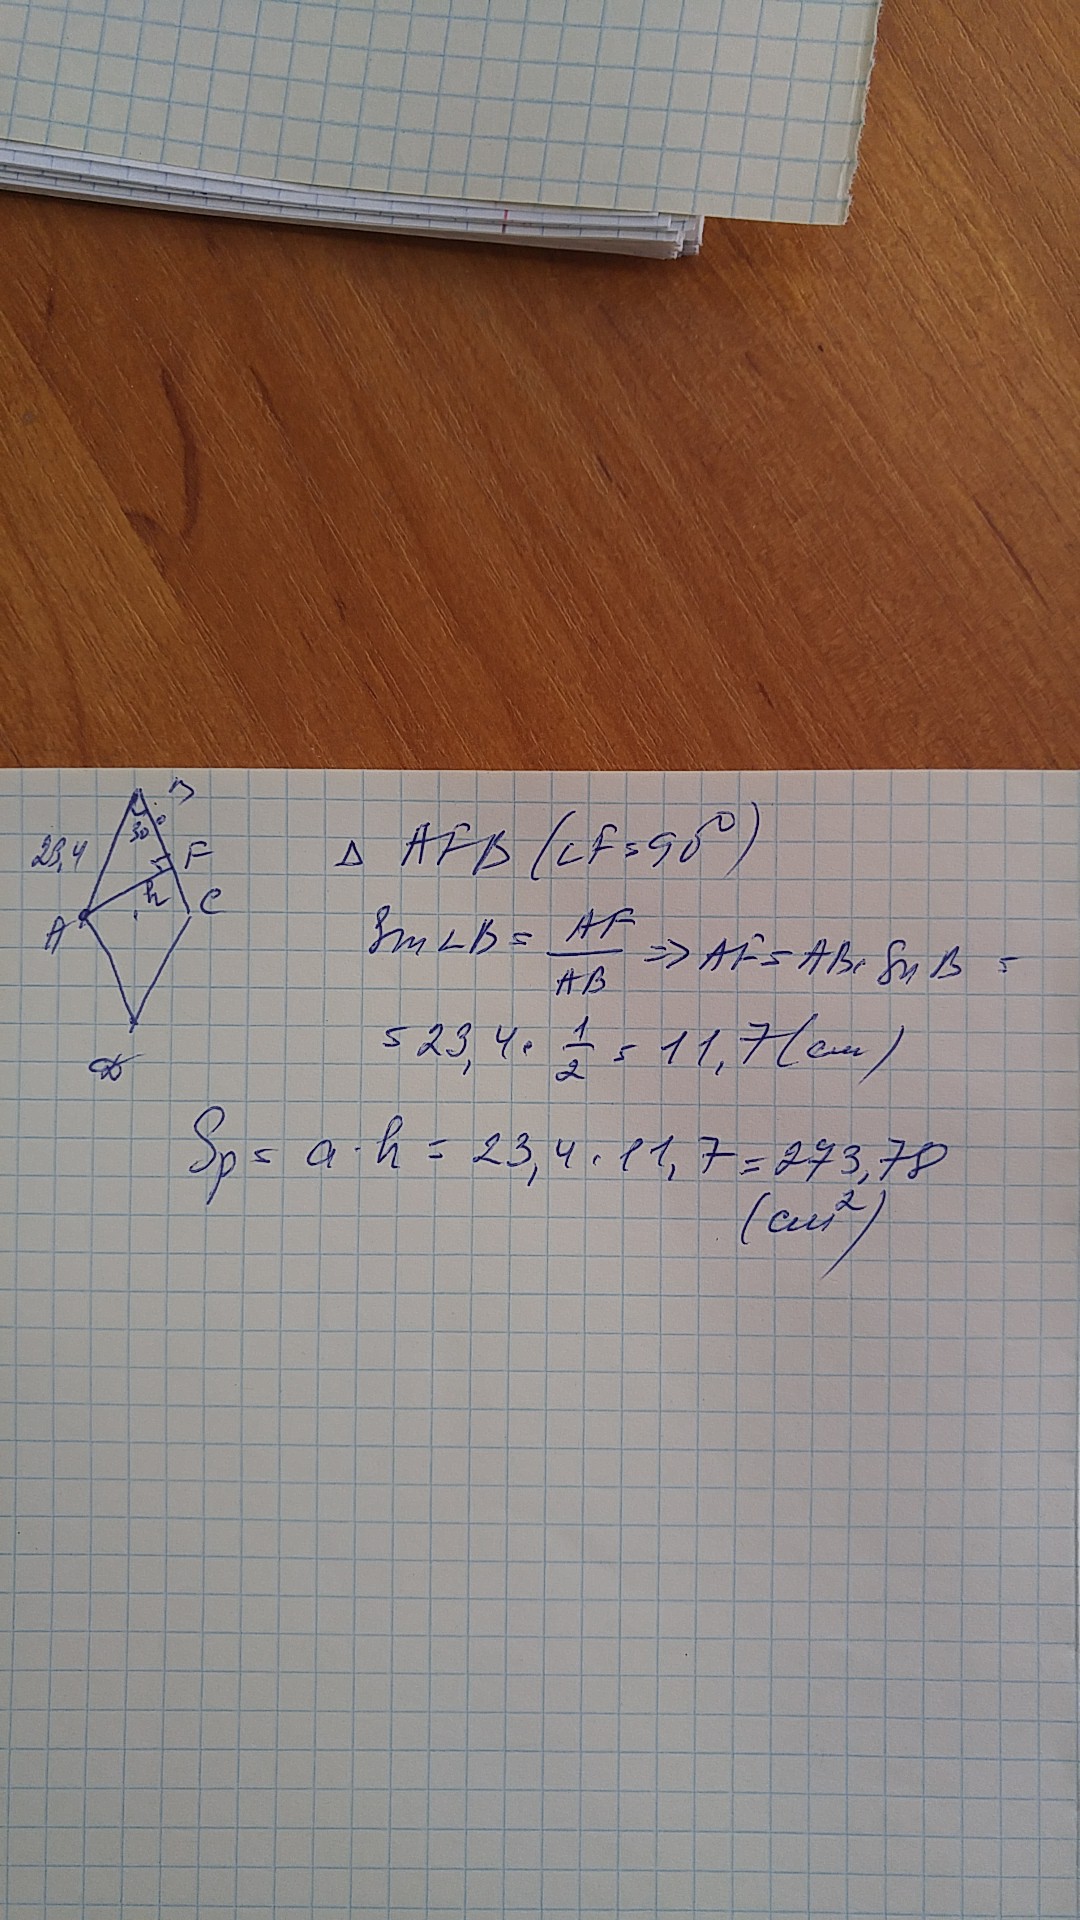 B
30°
23,4
F
h
C
A
D
Δ AFB (∠F=90°)
Sin∠B = AF/AB => AF = AB · Sin B =
= 23,4 · 1/2 = 11,7 (см)
Sр = a · h = 23,4 · 11,7 = 273,78
(см²)